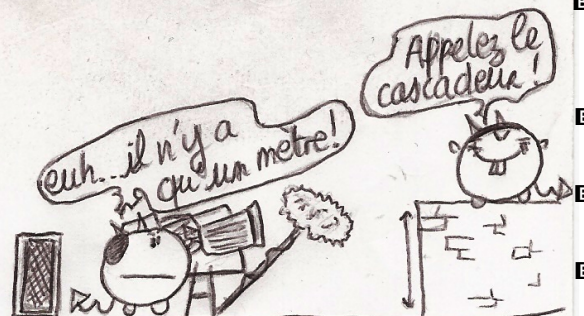 euh...il n'y a
qu'un mètre!
Appelez le
cascadeur!